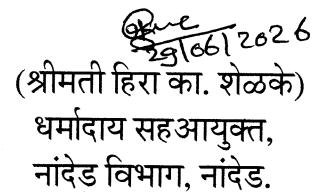 29/06/2026
(श्रीमती हिरा का. शेळके)
धर्मादाय सहआयुक्त,
नांदेड विभाग, नांदेड.